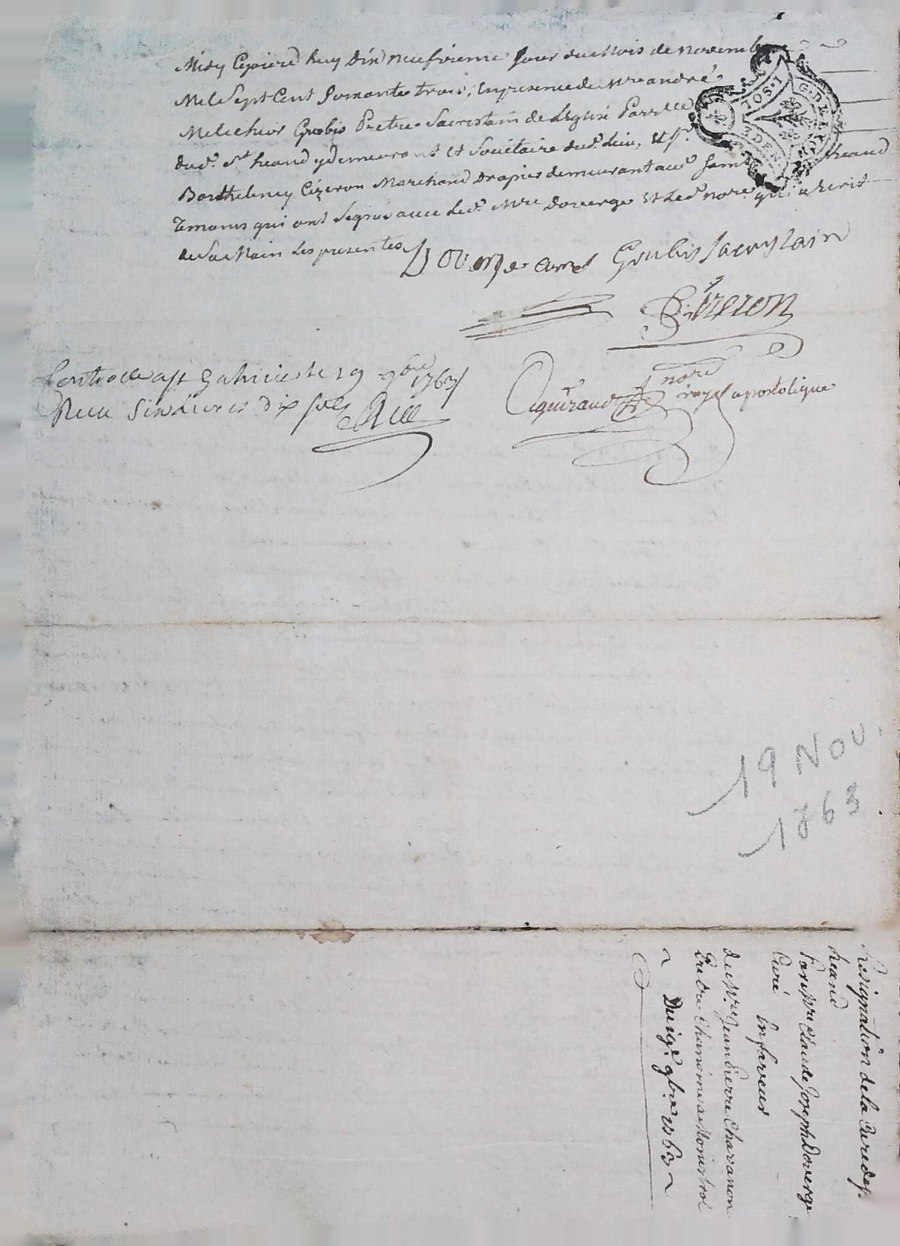 Midy Ce jourd'huy dix neufvieme Jour du Mois de novembre
Mil Sept Cent soixante trois, En presence de Mre andré
Melichior Grubis Pretre Sacristain de L'eglise Parr.lle
dud. St heand y demeurant et Societaire du d. lieu, et sr.
Barthelemy Cizeron Marchand Drapier demeurant aud. heand
Temoins qui ont signé avec led. Mre Dovergé et led. nore. qui a ecrit
de Sa Main Les presentes
Dovergé curé Grubis Sacristain
Cizeron
Controllé a St Galmier le 19 9bre 1763
Reçu Six Livres dix sols
nore
royal apostolique
G. DE LYON
19 NOV.
1763
Resignation de la Cure de St.
heand
Par Mre Claude Joseph Dovergé
Curé
En faveur
de Mre Jean Pierre Charanon
Pretre Chanoine a Monistrol
Du 19e. 9bre 1763